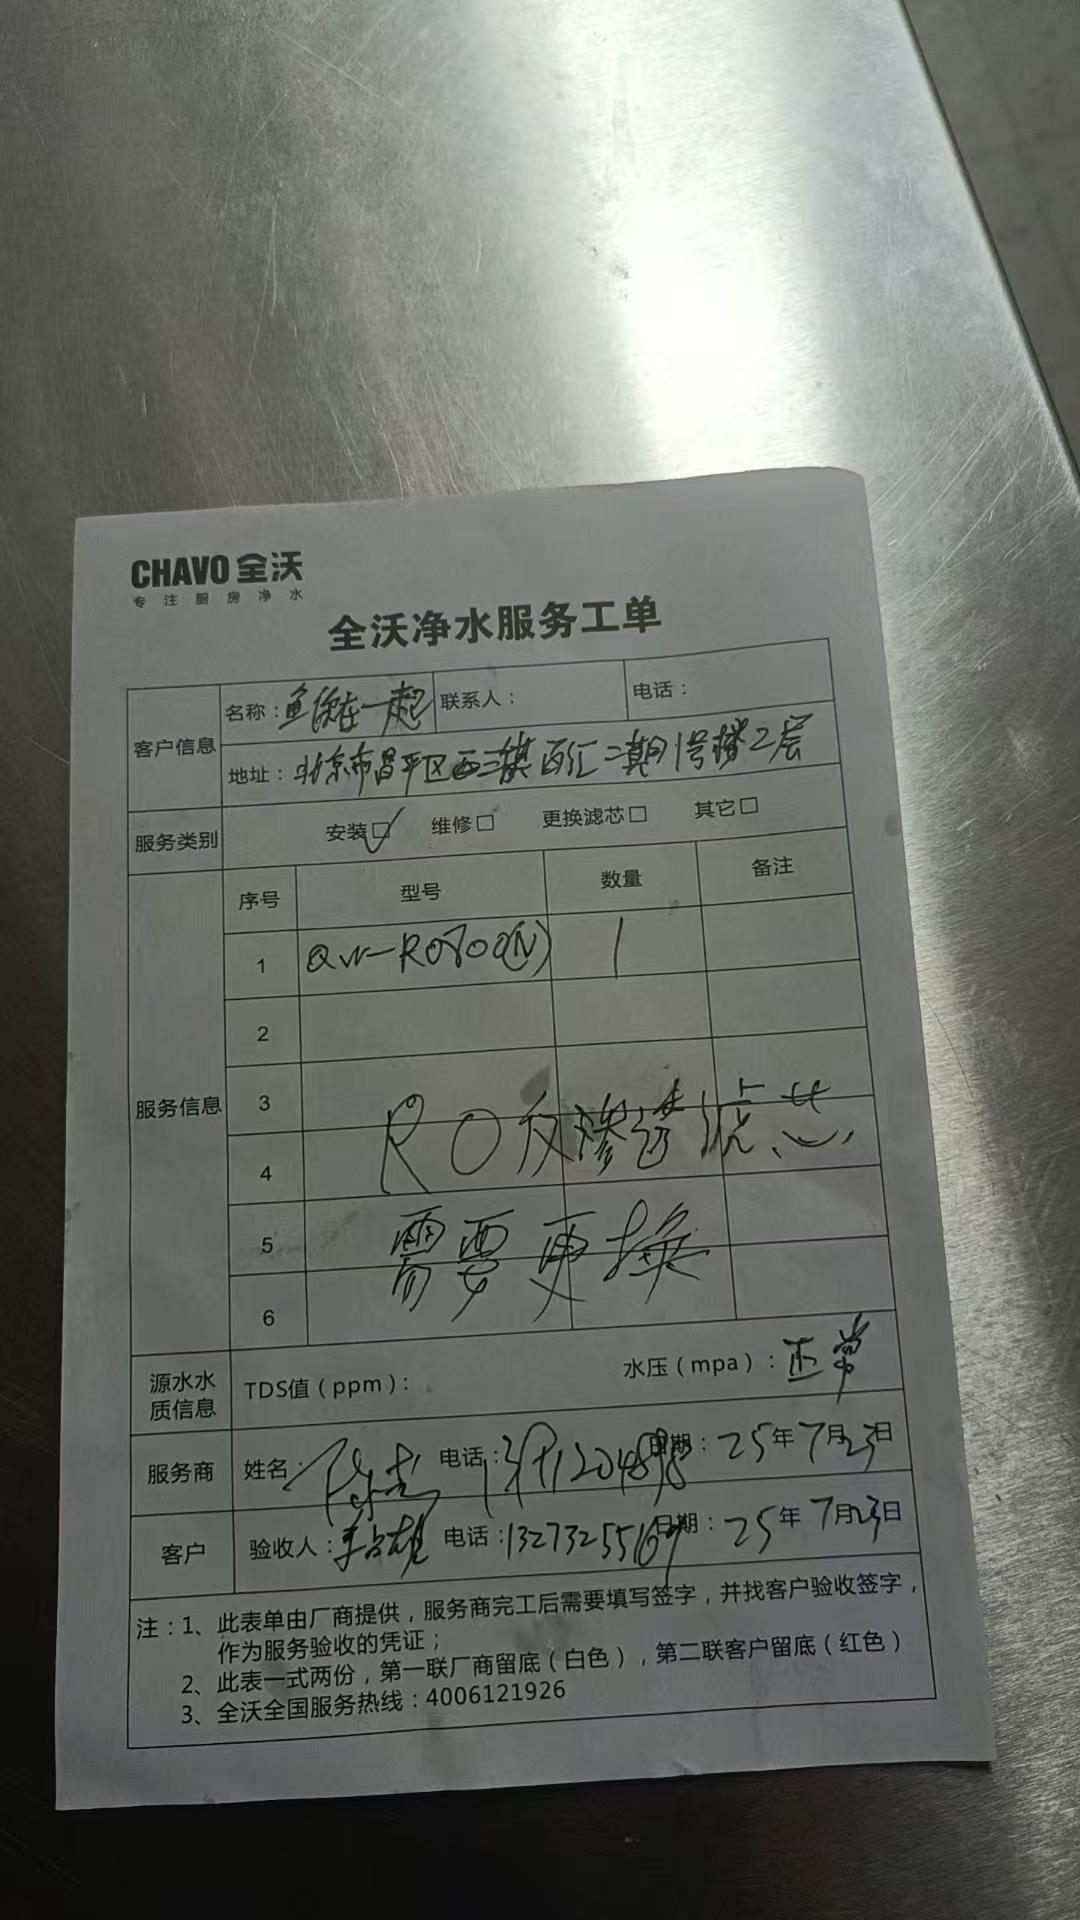 CHAVO 全沃
专注厨房净水
全沃净水服务工单
客户信息
名称：鱼你在一起 联系人： 电话：
地址：北京市昌平区西三旗百汇二期1号楼2层
服务类别 安装☑ 维修□ 更换滤芯□ 其它□
服务信息
序号 型号 数量 备注
1 QW-RO800(N) 1
2
3
4
RO反渗透滤芯
5
需要更换
6
源水水质信息
TDS值（ppm）： 水压（mpa）：正常
服务商 姓名： 电话： 日期：25年7月23日
客户 验收人： 电话：13273255169 日期：25年7月23日
注：1、此表单由厂商提供，服务商完工后需要填写签字，并找客户验收签字，
作为服务验收的凭证；
2、此表一式两份，第一联厂商留底（白色），第二联客户留底（红色）
3、全沃全国服务热线：4006121926